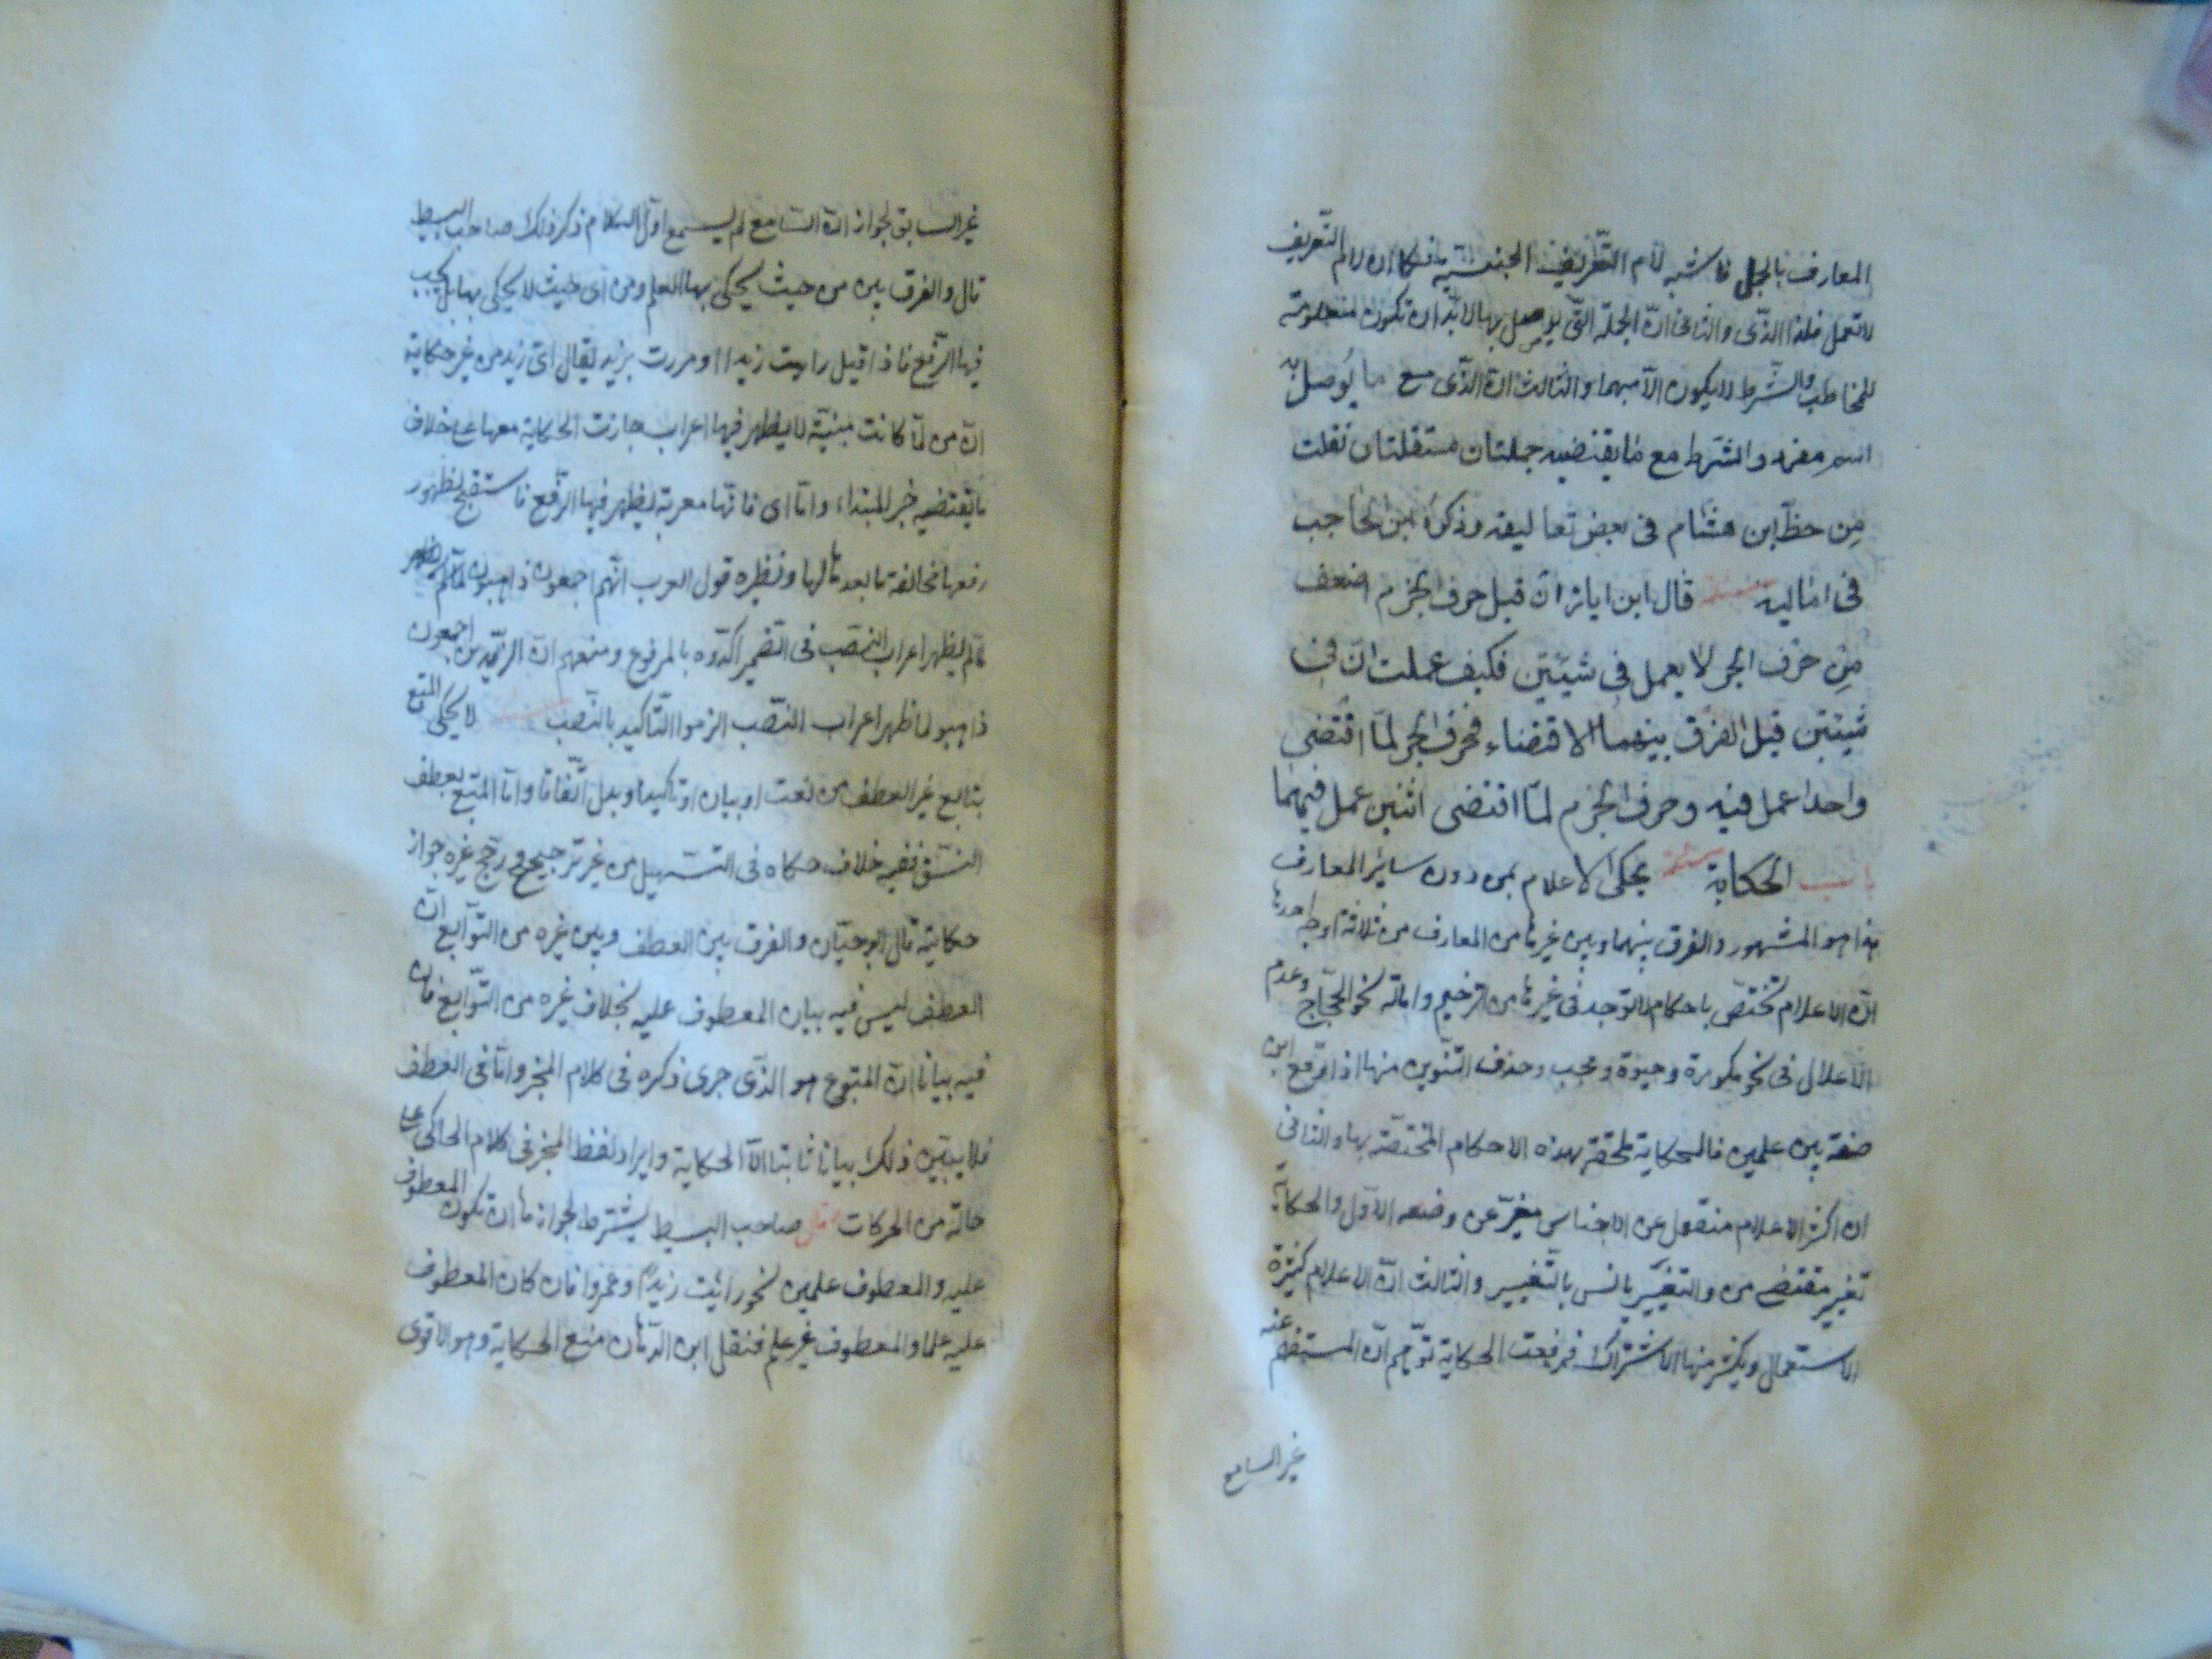 المعارف بالجمل فاشبه لام التعريف الجنسية فكما ان لام التعريف
لا تعمل فكذا الذى والثانى ان الجملة التى يوصل بها لا بد ان تكون معلومة
للمخاطب والشرط لا يكون الا مبهما والثالث ان الذى مع ما يوصل به
اسم مفرد والشرط مع ما يقتضيه جملتان مستقلتان نقلت
من خط ابن هشام فى بعض تعاليقه وذكره ابن الحاجب
فى اماليه قال ابن اياز ان قيل حرف الجزم اضعف
من حرف الجر لا يعمل فى شيئين فكيف عملت ان فى
شيئين قيل الفرق بينهما الاقتضاء فحرف الجر لما اقتضى
واحدا عمل فيه وحرف الجزم لما اقتضى اثنين عمل فيهما
باب الحكاية مسئلة يحكى الاعلام بمن دون ساير المعارف
هذا هو المشهور والفرق بينهما وبين غيرها من المعارف من ثلاثة اوجه احدها
ان الاعلام تختص باحكام لا توجد فى غيرها من ترخيم وامالة نحو الحجاج وعدم
الاعلال فى نحو مكوزة وحيوة ومحبب وحذف التنوين منها اذا وقع ابن
صفة بين علمين فالحكاية ملحقة بهذه الاحكام المختصة بها والثانى
ان اكثر الاعلام منقول عن الاجناس مغير عن وضعه الاول والحكاية
تغيير مقتضى من والتغيير يانس بالتغيير والثالث ان الاعلام كثيرة
الاستعمال ويكثر منها الاشتراك فرفعت الحكاية توهم ان المستفهم عنه
غير السامع
غير السابق لجواز ان السامع لم يسمع اول الكلام ذكر ذلك صاحب البسيط
قال والفرق بين من حيث يحكى بها العلم ومن اى حيث لا يحكى بها بل يجب
فيها الرفع فاذا قيل رايت زيدا او مررت بزيد يقال اى زيد من غير حكاية
ان من لما كانت مبنية لا يظهر فيها اعراب جازت الحكاية معها على خلاف
ما يقتضيه خبر المبتداء واما اى فانها معربة يظهر فيها الرفع فاستقبح لظهور
رفعها مخالفة ما بعدها لها ونظيره قول العرب انهم اجمعون ذاهبون لما لم يظهر
لم يظهر اعراب النصب فى الضمير اكدوه بالمرفوع ومنعهم ان الزيدين اجمعون
ذاهبون لما ظهر اعراب النصب الزموا التاكيد بالنصب لا يحكى المتبع
بتابع غير العطف من نعت او بيان او تاكيد او بدل اتفاقا واما المتبع بعطف
النسق ففيه خلاف حكاه فى التسهيل من غير ترجيح ورجح غيره جواز
حكايته قال ابو حيان والفرق بين العطف وبين غيره من التوابع ان
العطف ليس فيه بيان المعطوف عليه بخلاف غيره من التوابع فان
فيه بيانا ان المتبوع هو الذى جرى ذكره فى كلام المخبر واما فى العطف
فلا يبين ذلك بيانا ثابتا الا الحكاية وايراد لفظ المخبر فى كلام الحاكى على
حالة من الحركات قال صاحب البسيط يشترط لجوازها ان تكون المعطوف
عليه والمعطوف علمين نحو رايت زيدا وعمروا فان كان المعطوف
عليه علما والمعطوف غير علم فنقل ابن الدهان منع الحكاية وهو الاقوى